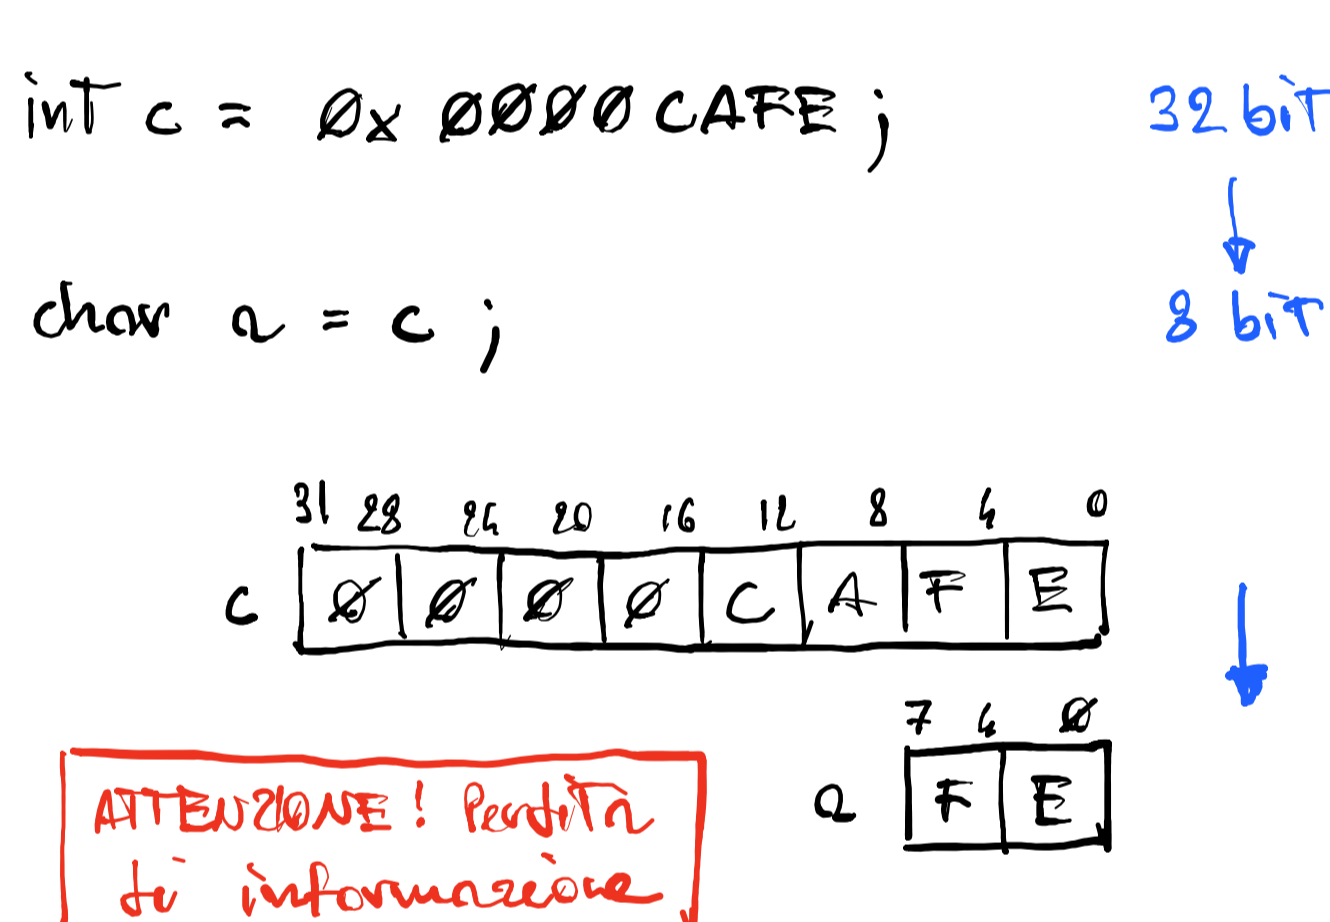 int c = 0x 0000CAFE ; 32 bit
char a = c ; 8 bit
31 28 24 20 16 12 8 4 0
c 0 0 0 0 C A F E
7 4 0
a F E
ATTENZIONE! Perdita
di informazione